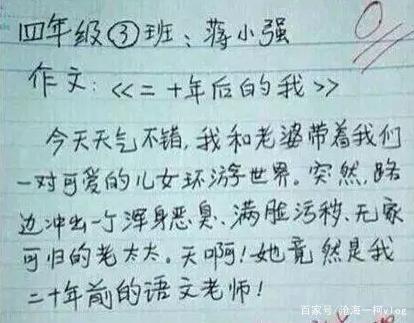 四年级③班：蒋小强
0
作文：<<二十年后的我>>
今天天气不错，我和老婆带着我们
一对可爱的儿女环游世界。突然，路
边冲出一个浑身恶臭、满脸污秽、无家
可归的老太太。天啊！她竟然是我
二十年前的语文老师！
百家号/沧海一柯vlog